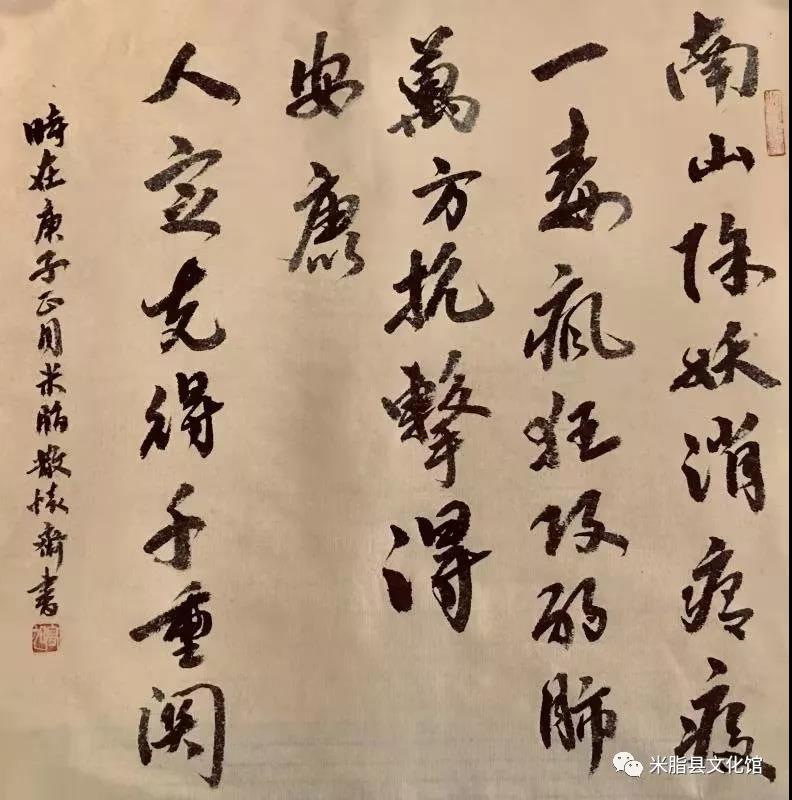 南山除妖消瘟疫
一毒疯狂攻弱肺
萬方抗擊得
安康
人定克得千重関
時在庚子正月米脂散懷齋書
米脂县文化馆